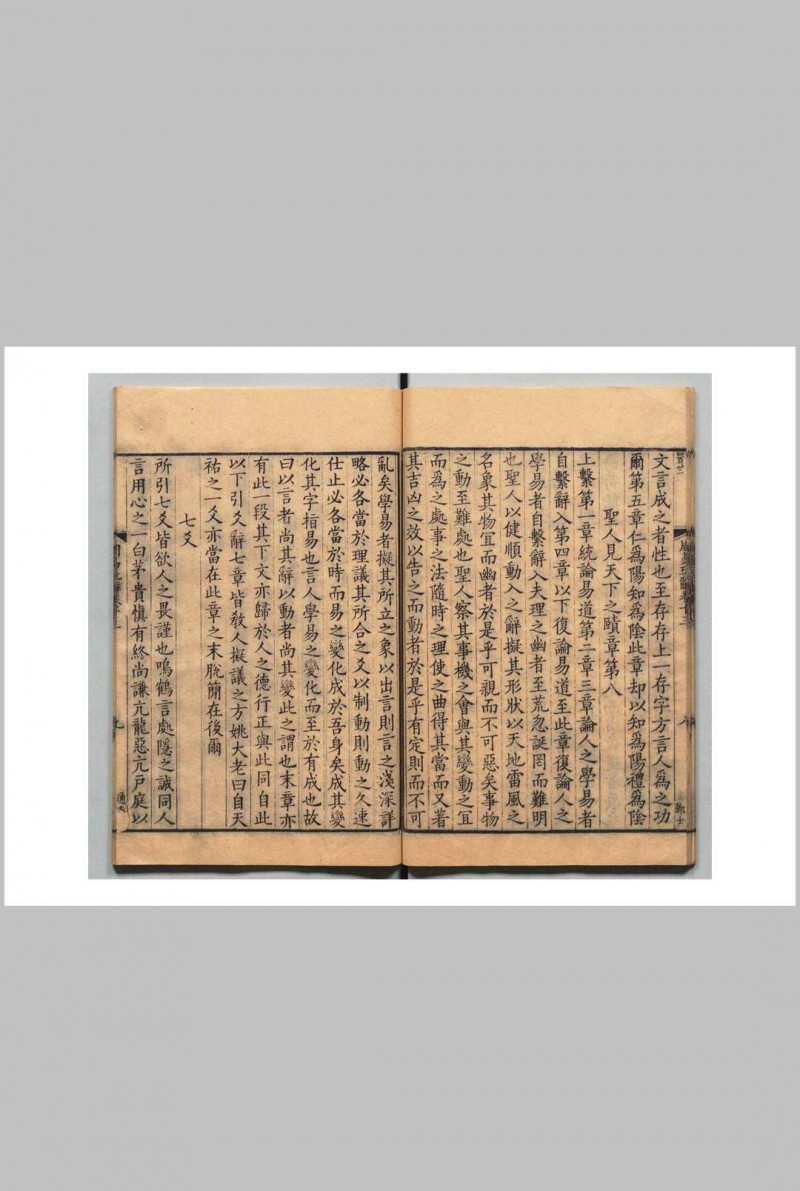 文言成之者性也至存存上一存字方言人爲之功
爾第五章仁爲陽知爲陰此章却以知爲陽禮爲陰
聖人見天下之賾章第八
上繫第一章統論易道第二章三章論人之學易者
自繫辭入第四章以下復論易道至此章復論人之
學易者自繫辭入夫理之幽者至荒忽誕罔而難明
也聖人以健順動入之辭擬其形狀以天地雷風之
名象其物宜而幽者於是乎可親而不可惡矣事物
之動至難處也聖人察其事機之會與其變動之宜
而爲之處事之法隨時之理使之曲得其當而又著
其吉凶之效以告之而動者於是乎有定則而不可
亂矣學易者擬其所立之象以出言則言之淺深詳
略必各當於理議其所合之爻以制動則動之久速
仕止必各當於時而易之變化成於吾身矣成其變
化其字指易也言人學易之變化而至於有成也故
曰以言者尚其辭以動者尚其變此之謂也末章亦
有此一段其下文亦歸於人之德行正與此同自此
以下引爻辭七章皆敎人擬議之方姚大老曰自天
祐之一爻亦當在此章之末脫簡在後爾
七爻
所引七爻皆欲人之畏謹也鳴鶴言處隱之誠同人
言用心之一白茅貴愼有終尚謙亢龍惡亢戶庭以